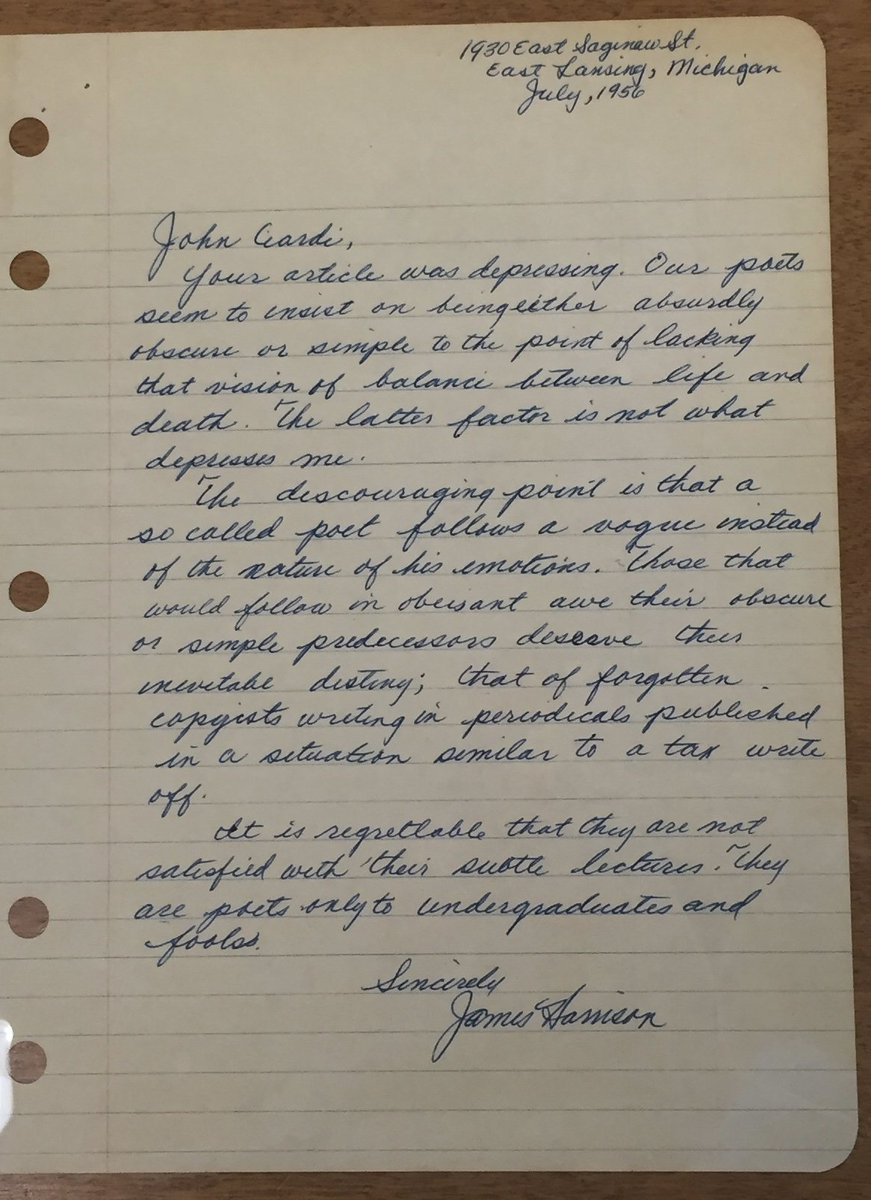 1930 East Saginaw St.
East Lansing, Michigan
July, 1956
John Ciardi,
Your article was depressing. Our poets
seem to insist on being either absurdly
obscure or simple to the point of lacking
that vision of balance between life and
death. The latter factor is not what
depresses me.
The discouraging point is that a
so called poet follows a vogue instead
of the nature of his emotions. Those that
would follow in obeisant awe their obscure
or simple predecessors deserve their
inevitabe destiny; that of forgotten
copyists writing in periodicals published
in a situation similar to a tax write
off.
It is regrettable that they are not
satisfied with their subtle lectures. They
are poets only to undergraduates and
fools.
Sincerely
James Harrison